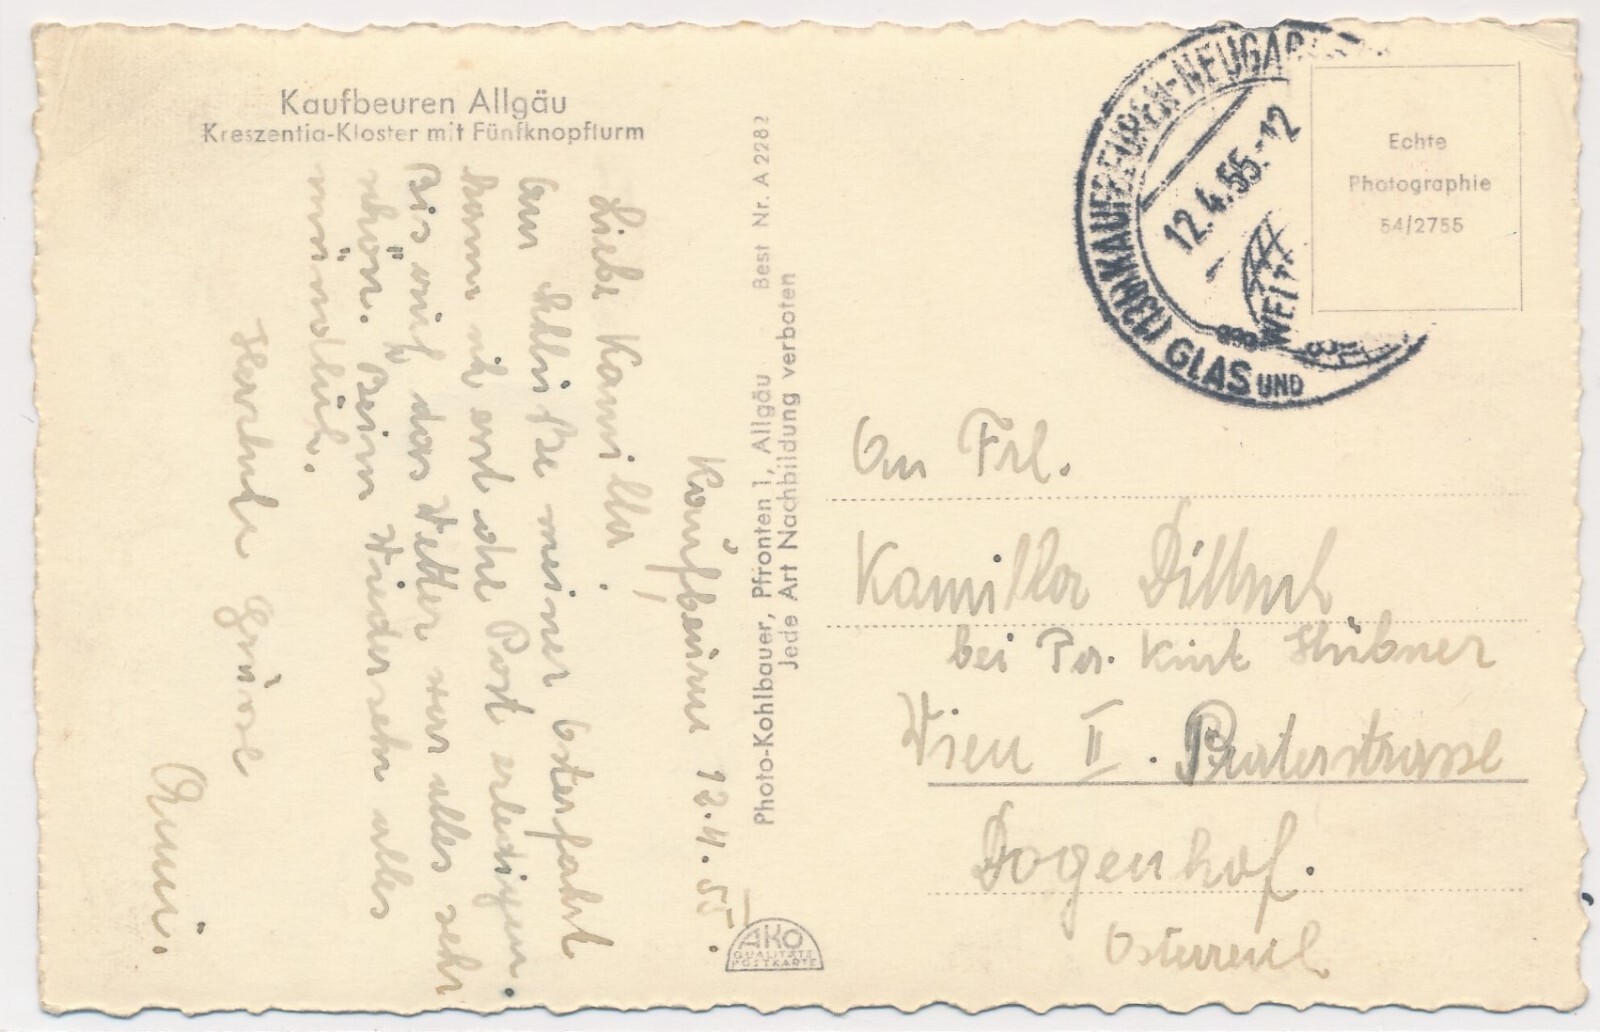 Kaufbeuren Allgäu
Kreszentia-Kloster mit Fünfknopfturm
Kaufbeuren 12.4.55.
Liebe Kamilla!
Am Schluße meiner Osterfahrt
kann ich erst die Post erledigen.
Bis auf das Wetter war alles sehr
schön. Beim Wiedersehn alles
mündlich.
Herzliche Grüsse
Photo-Kohlbauer, Pfronten 1, Allgäu Best Nr. A 2282
Jede Art Nachbildung verboten
AKO
QUALITÄTS
POSTKARTE
(13b) KAUFBEUREN-NEUGABLONZ
12.4.55.-12
GLAS UND
WELT
Echte
Photographie
54/2755
An Frl.
Kamilla
bei Kurt Hübner
Wien II. Praterstrasse
Dogenhof.
Österreich